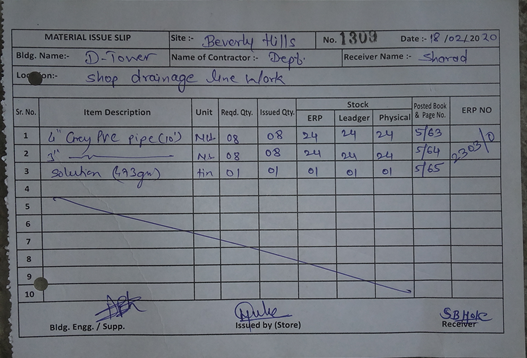 MATERIAL ISSUE SLIP Site :- Beverly Hills No. 1309 Date :- 18/02/2020
Bldg. Name:- D-Tower Name of Contractor :- Dept. Receiver Name :- Sharad
Location:- Shop drainage line work
Sr. No. Item Description Unit Reqd. Qty. Issued Qty. Stock Posted Book & Page No. ERP NO
ERP Leadger Physical
1 4" Grey PVC pipe (10') 08 08 24 24 24 5/63
2 3" 08 08 24 24 24 5/64
3 Solution tin 01 01 01 01 01 5/65
4
5
6
7
8
9
10
Bldg. Engg. / Supp. Issued by (Store) Receiver